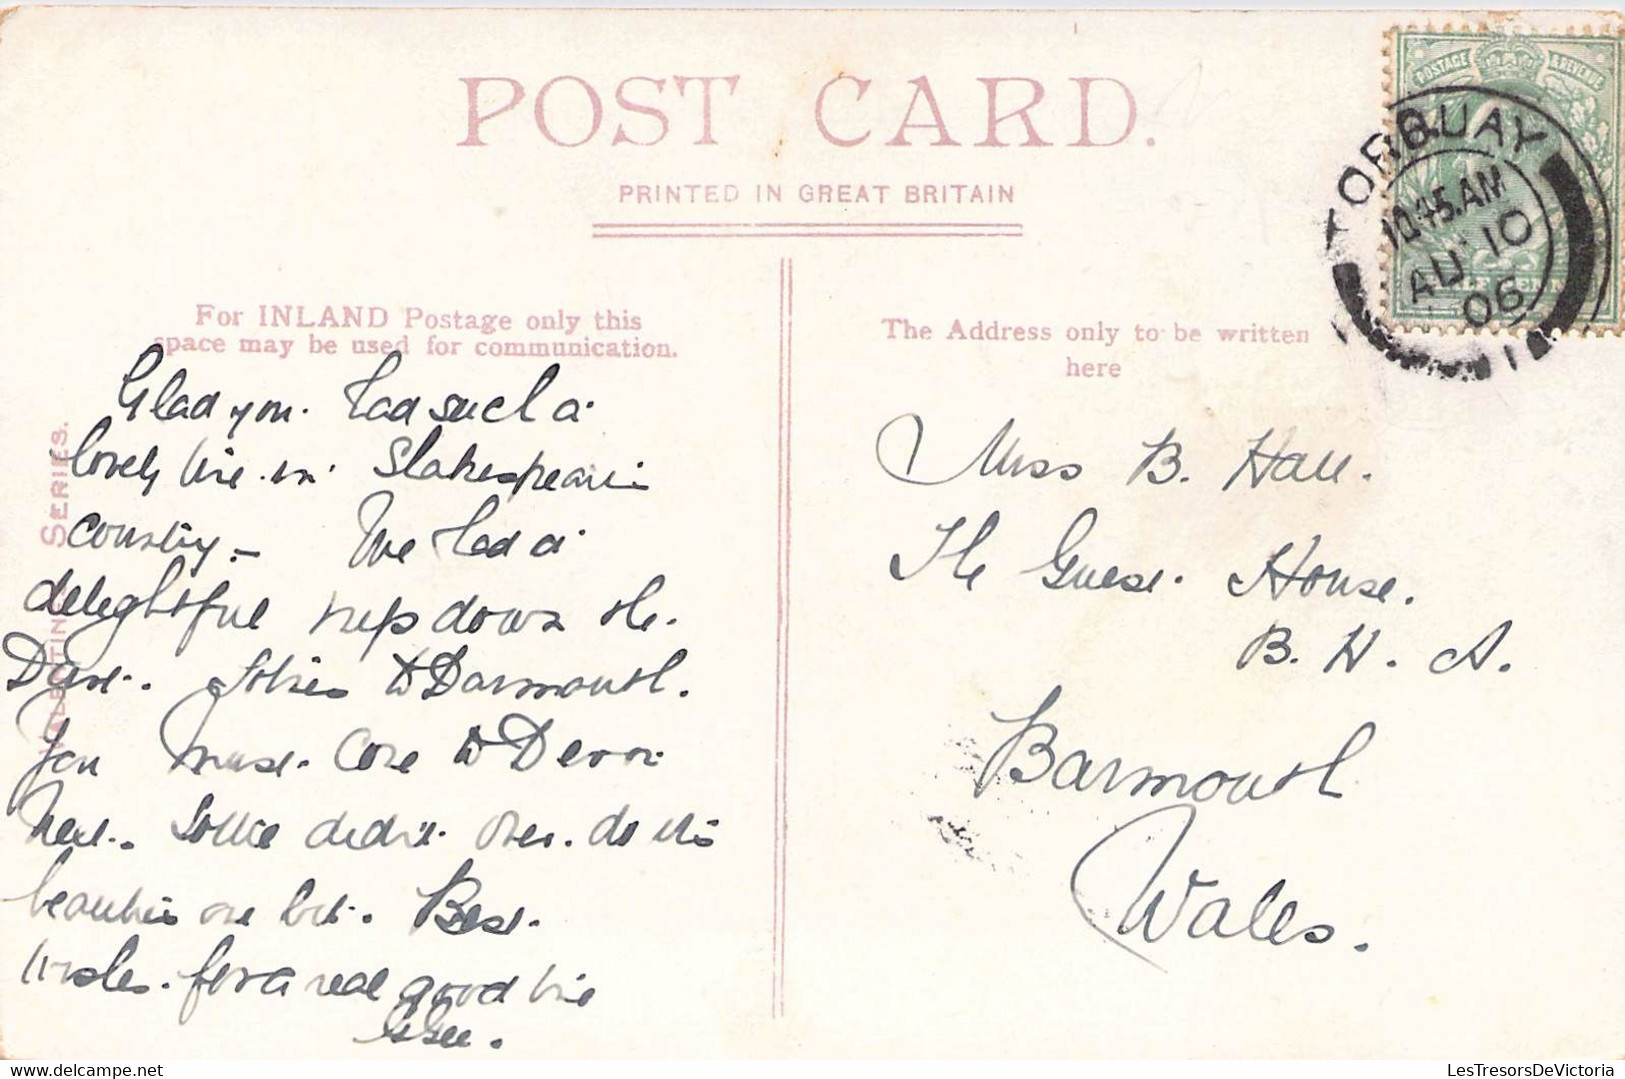 POST CARD.
PRINTED IN GREAT BRITAIN
POSTAGE & REVENUE
TORQUAY
10.45.AM
AU 10
06
For INLAND Postage only this
space may be used for communication.
VALENTINE'S SERIES.
Glad you had such a
lovely time in Shakespeare
country. - We had a
delightful trip down the
Dart. to Dartmouth.
You must come to Devon
next. didn't over do its
beauties one bit. Best
wishes for a real good time
The Address only to be written
here
Miss B. Hall.
The Guest House.
B. H. A.
Barmouth
Wales.
delcampe.net
LesTresorsDeVictoria